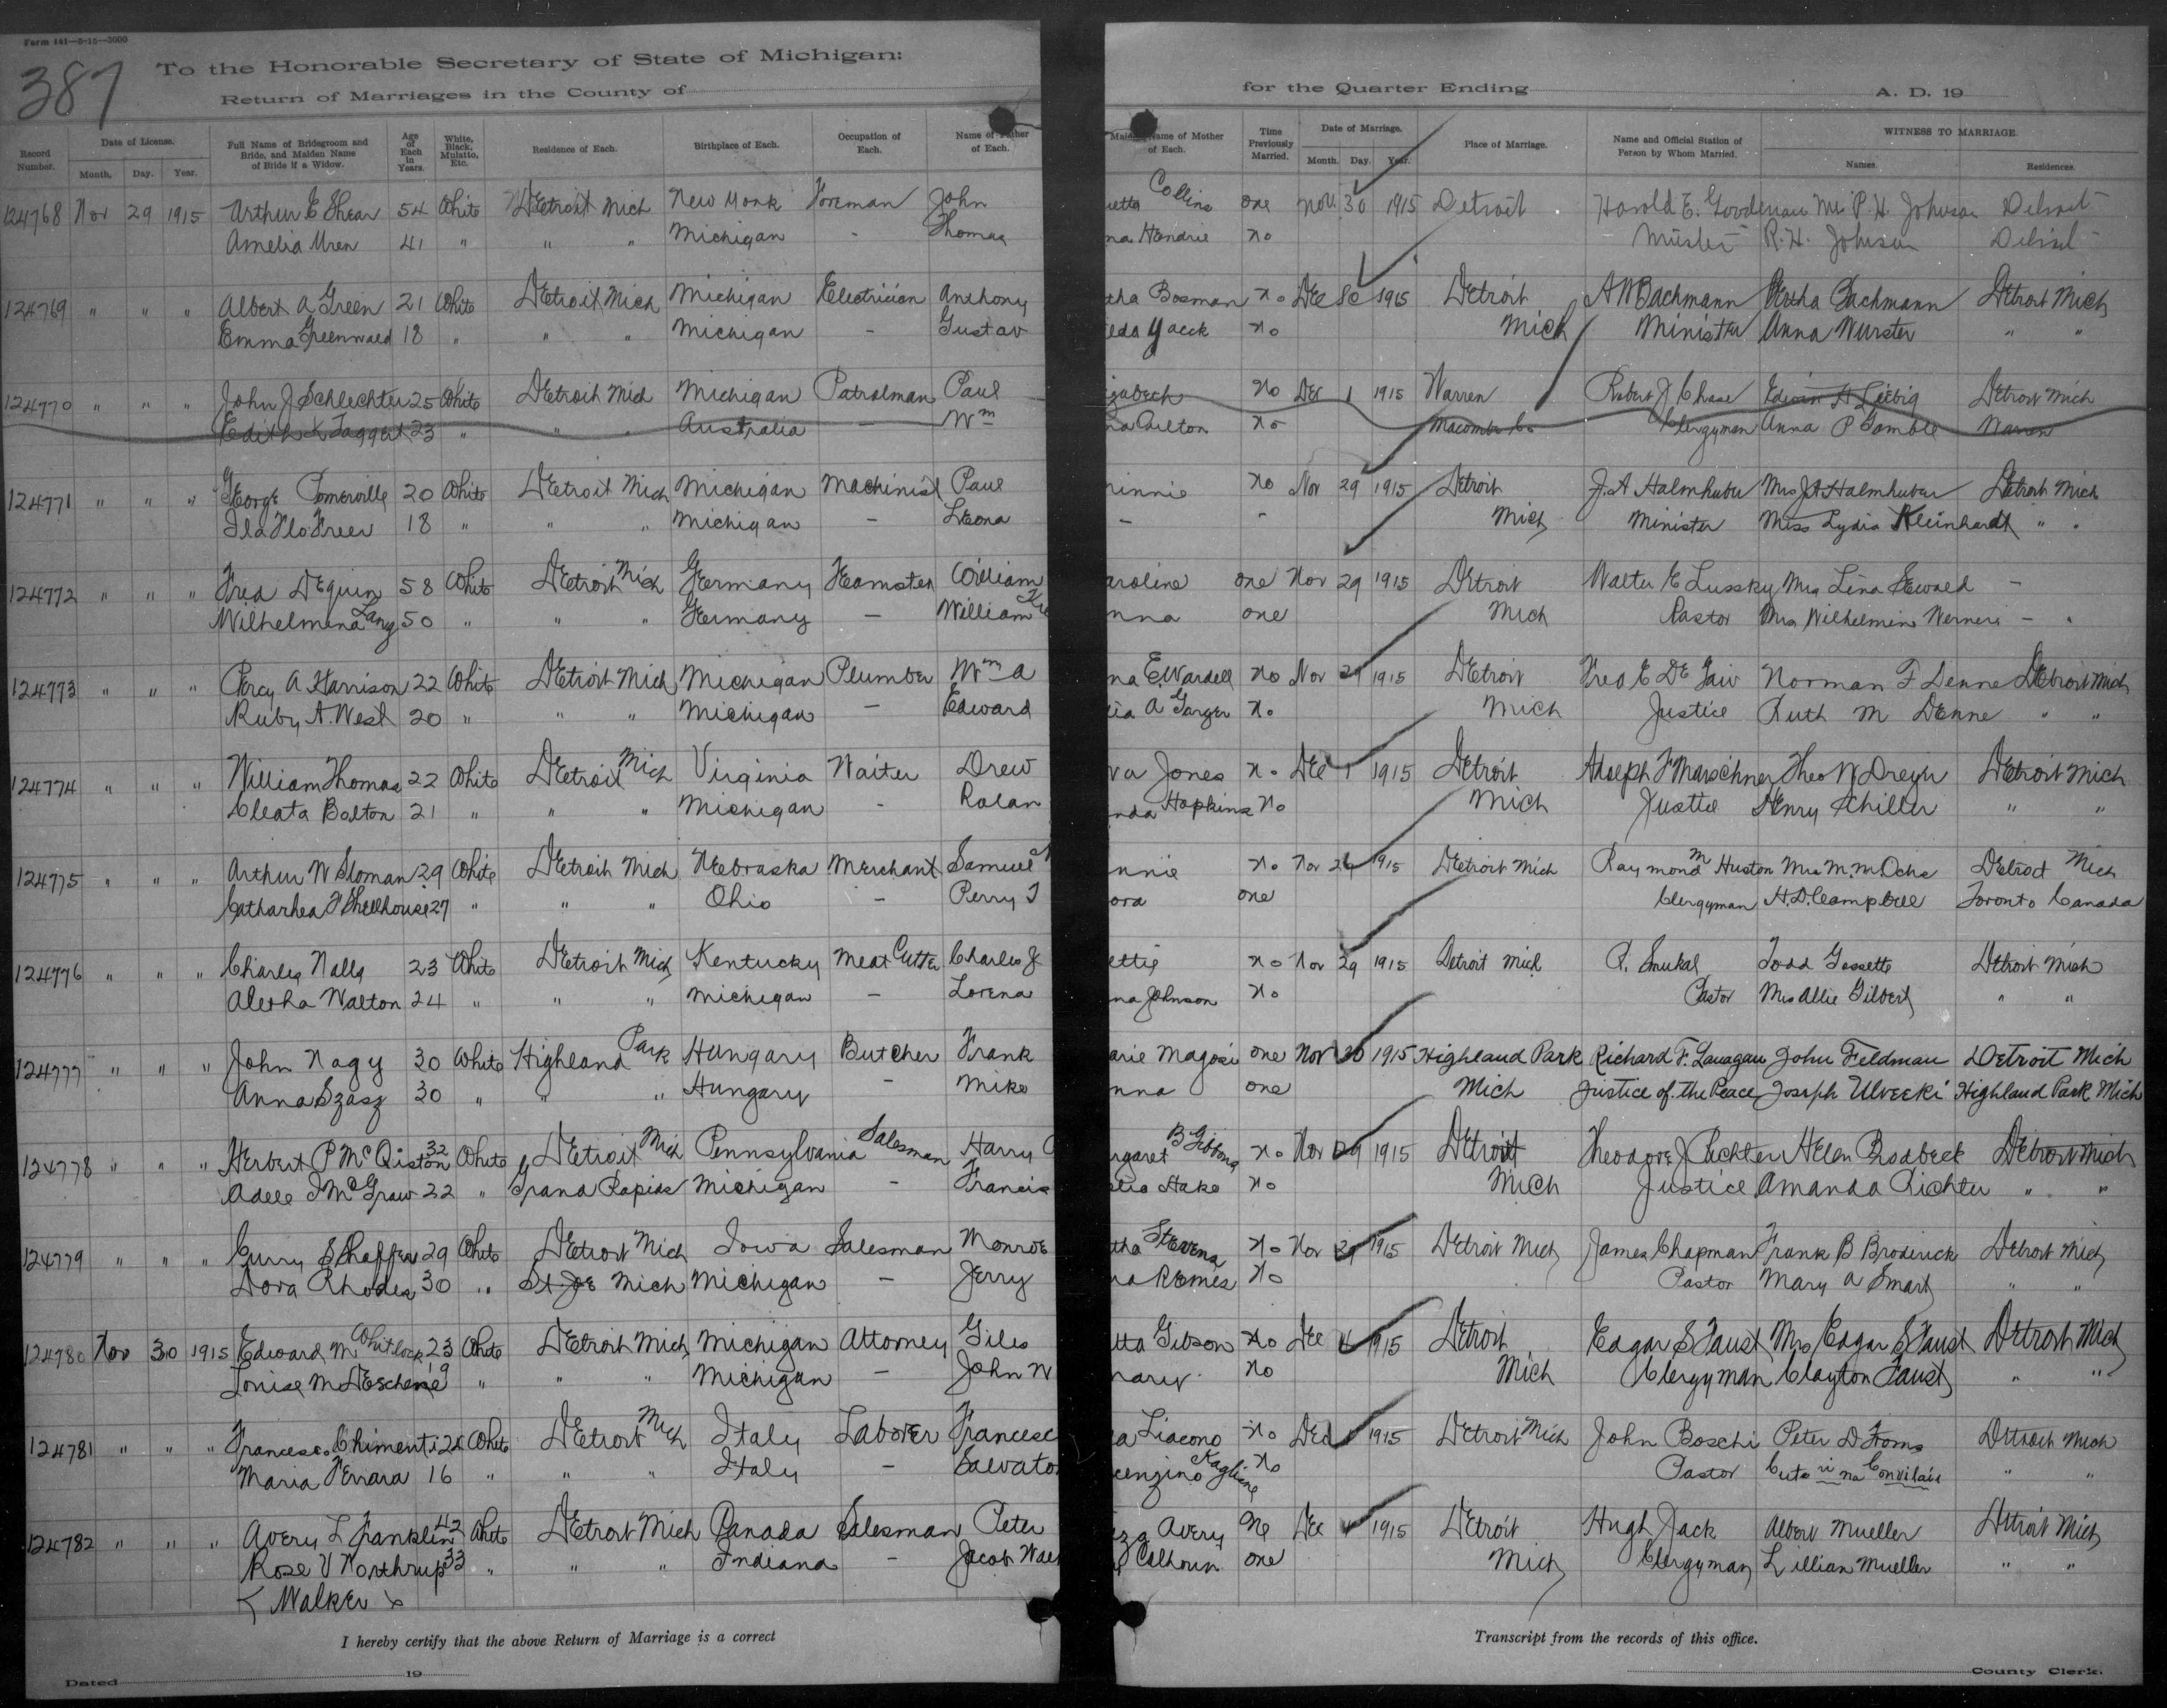 Form 141—8-15—3000
387
To the Honorable Secretary of State of Michigan:
Return of Marriages in the County of
for the Quarter Ending A. D. 19
Record Number. Date of License. Month. Day. Year. Full Name of Bridegroom and Bride, and Maiden Name of Bride if a Widow. Age of Each in Years. White, Black, Mulatto, Etc. Residence of Each. Birthplace of Each. Occupation of Each. Name of Father of Each. Maiden Name of Mother of Each. Time Previously Married. Date of Marriage. Month. Day. Year. Place of Marriage. Name and Official Station of Person by Whom Married. WITNESS TO MARRIAGE. Names. Residences.
124768 Nov 29 1915 Arthur E Shear 54 White Detroit Mich New York Foreman John etta Collins one Nov. 30 1915 Detroit Harold E. Goodenau Mrs P. H. Johnson Detroit
Amelia Uren 41 " " " Michigan - Thomas na Hendrie no R. H. Johnson Detroit
124769 " " " Albert A Green 21 White Detroit Mich Michigan Electrician Anthony tha Bosman no Dec 1915 Detroit A W Bachmann Bertha Bachmann Detroit Mich
Emma Greenwald 18 " " " Michigan - Gustav eda Yaeck no Mich Minister Anna Wurster " "
124770 " " " John J Schlechter 25 White Detroit Mich Michigan Patrolman Paul izabech no Dec 1 1915 Warren Robert J Chase Edwin H Liebig Detroit Mich
Edith L Taggert 23 " " " Australia - Wm na Carlton no Macomb Co Clergyman Anna P Gamble Warren
124771 " " " George Pomerville 20 White Detroit Mich Michigan Machinist Paul innie no Nov 29 1915 Detroit J. A Halmhuber Mrs J A Halmhuber Detroit Mich
Ila Flo Freer 18 " " " Michigan - Leona - - Mich Minister Miss Lydia Kleinhardt " "
124772 " " " Fred Dequin 58 White Detroit Mich Germany Teamster William aroline one Nov 29 1915 Detroit Walter E Lussky Mrs Lina Sewald -
Wilhelmina Lang 50 " " " Germany - William nna one Mich Pastor Mrs Wilhelmin Werner - "
124773 " " " Percy A Harrison 22 White Detroit Mich Michigan Plumber Wm A na E. Wardell no Nov 29 1915 Detroit Fred E De Gaw Norman F Denne Detroit Mich
Ruby A. West 20 " " " Michigan - Edward lia A Garger no Mich Justice Ruth M Denne " "
124774 " " " William Thomas 22 White Detroit Mich Virginia Waiter Drew va Jones no Dec 1 1915 Detroit Adolph F Marschner Theo W Dreyer Detroit Mich
Cleata Bolton 21 " " " Michigan - Rolan nda Hopkins no Mich Justice Henry Schiller " "
124775 " " " Arthur W Sloman 29 White Detroit Mich Nebraska Merchant Samuel nnie no Nov 1915 Detroit Mich Raymond M Huston Mrs M. M. Ochs Detroit Mich
Catharhea F Shellhouse 27 " " " Ohio - Perry T ora one Clergyman H. D. Campbell Toronto Canada
124776 " " " Charles Nalls 23 White Detroit Mich Kentucky Meat Cutter Charles J ettie no Nov 29 1915 Detroit Mich R. Smukal Todd Gossette Detroit Mich
Aletha Walton 24 " " " Michigan - Lorena na Johnson no Pastor Mrs Allie Gilbert " "
124777 " " " John Nagy 30 White Highland Park Hungary Butcher Frank arie Magosi one Nov 30 1915 Highland Park Richard F. Lanagan John Feldman Detroit Mich
Anna Szasz 30 " " " Hungary - Mike nna one Mich Justice of the Peace Joseph Ulvecki Highland Park Mich
124778 " " " Herbert P McQiston 32 White Detroit Mich Pennsylvania Salesman Harry rgaret B Gibbons no Nov 29 1915 Detroit Theodore J Richter Helen Brodbeck Detroit Mich
Adele I McGraw 22 " Grand Rapids Michigan - Francis elia Hake no Mich Justice Amanda Richter " "
124779 " " " Curry S Shaffer 29 White Detroit Mich Iowa Salesman Monroe tha Stevens no Nov 29 1915 Detroit Mich James Chapman Frank B Broderick Detroit Mich
Dora Rhodes 30 " St Joe Mich Michigan - Jerry na Remes no Pastor Mary A Smart " "
124780 Nov 30 1915 Edward M Whitlock 23 White Detroit Mich Michigan Attorney Giles tta Gibson no Dec 4 1915 Detroit Edgar S Faust Mrs Edgar S Faust Detroit Mich
Louise M Deschene 19 " " " Michigan - John W Mary no Mich Clergyman Clayton Faust " "
124781 " " " Francesco Chimenti White Detroit Mich Italy Laborer Francesc a Liacono no Dec 1915 Detroit Mich John Boschi Peter D Detroit Mich
Maria Ferrara 16 " " " Italy - Salvato cenzino no Pastor " "
124782 " " " Avery L Franklin 42 White Detroit Mich Canada Salesman Peter iza Avery no Dec 1915 Detroit Hugh Jack Albert Mueller Detroit Mich
Rose V Northrup 33 " " " Indiana - Jacob Wal Calhoun one Mich Clergyman Lillian Mueller " "
Walker
I hereby certify that the above Return of Marriage is a correct Transcript from the records of this office.
Dated 19 County Clerk.